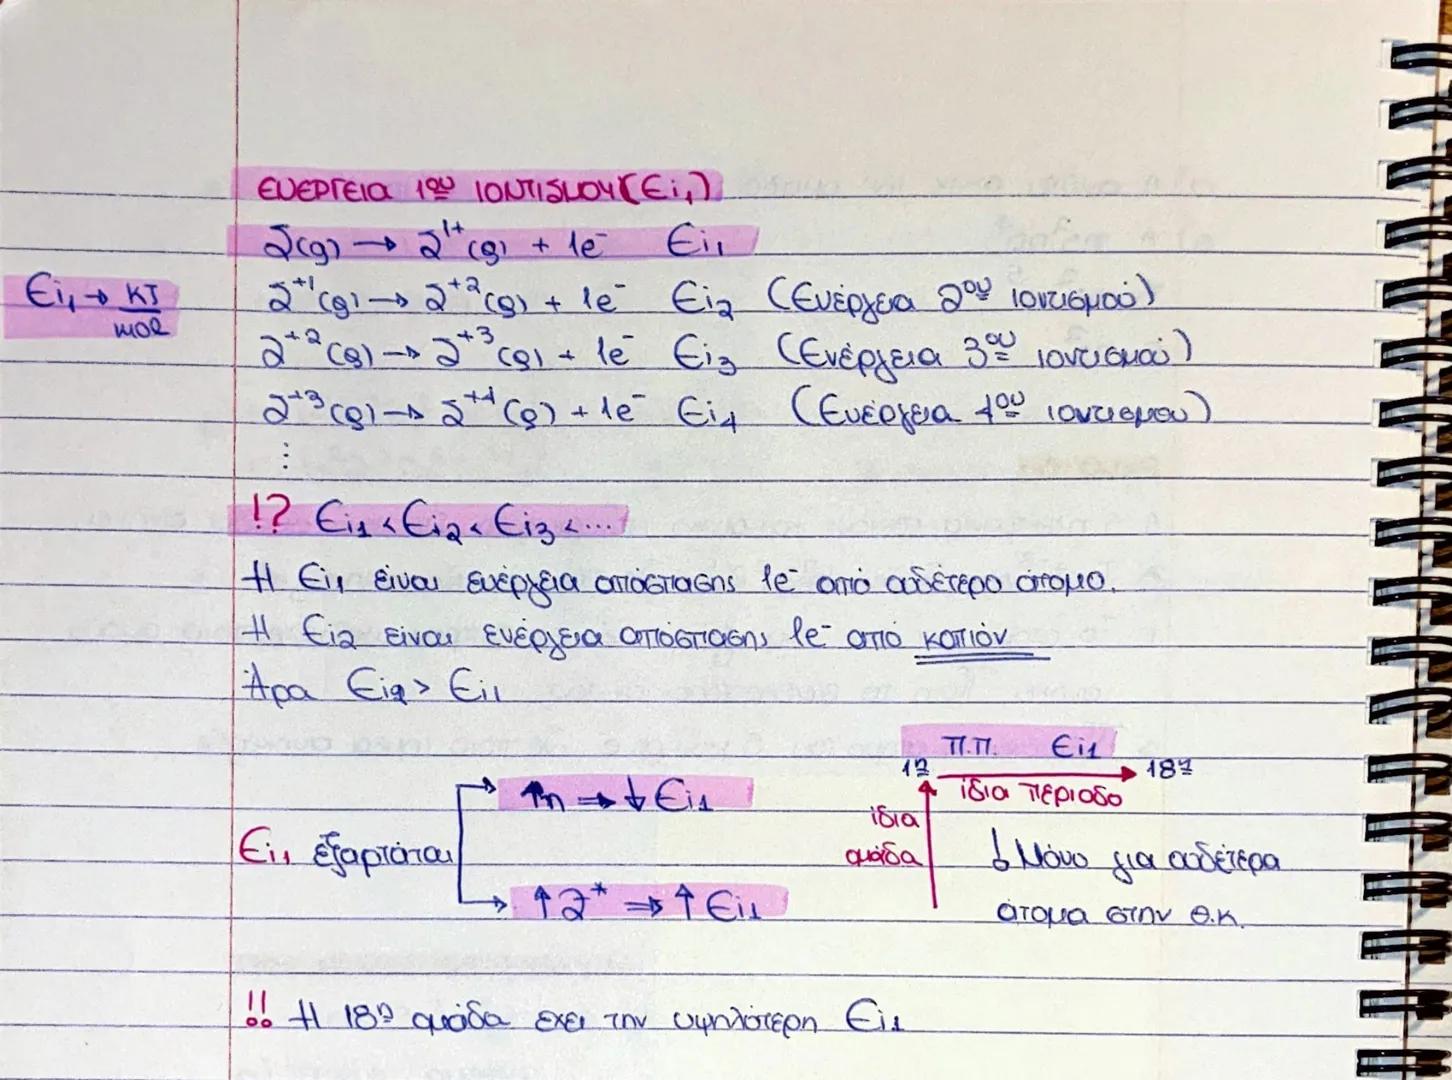 ΕΝΕΡΓΕΙΑ 1ου ΙΟΝΤΙΣΜΟΥ (Ei₁)
Σ(g) → Σ¹⁺(g) + 1e⁻ Ei₁
Ei₁ → KJ/mol
Σ⁺¹(g) → Σ⁺²(g) + 1e⁻ Ei₂ (Ενέργεια 2ου ιοντισμού)
Σ⁺²(g) → Σ⁺³(g) + 1e⁻ Ei₃ (Ενέργεια 3ου ιοντισμού)
Σ⁺³(g) → Σ⁺⁴(g) + 1e⁻ Ei₄ (Ενέργεια 4ου ιοντισμού)
⋮
!? Ei₁ < Ei₂ < Ei₃ < ...
Η Ei₁ είναι ενέργεια απόσπασης 1e⁻ από ουδέτερο άτομο.
Η Ei₂ είναι ενέργεια απόσπασης 1e⁻ από κατιόν
Άρα Ei₂ > Ei₁
Π.Π. Ei₁
1η → 18η
ίδια περίοδο
ίδια
ομάδα
↑n ⇒ ↓ Ei₁
Ei₁ εξαρτάται
↑Z* ⇒ ↑ Ei₁
↓ Μόνο για ουδέτερα
άτομα στην Θ.Κ.
!! Η 18η ομάδα έχει την υψηλότερη Ei₁